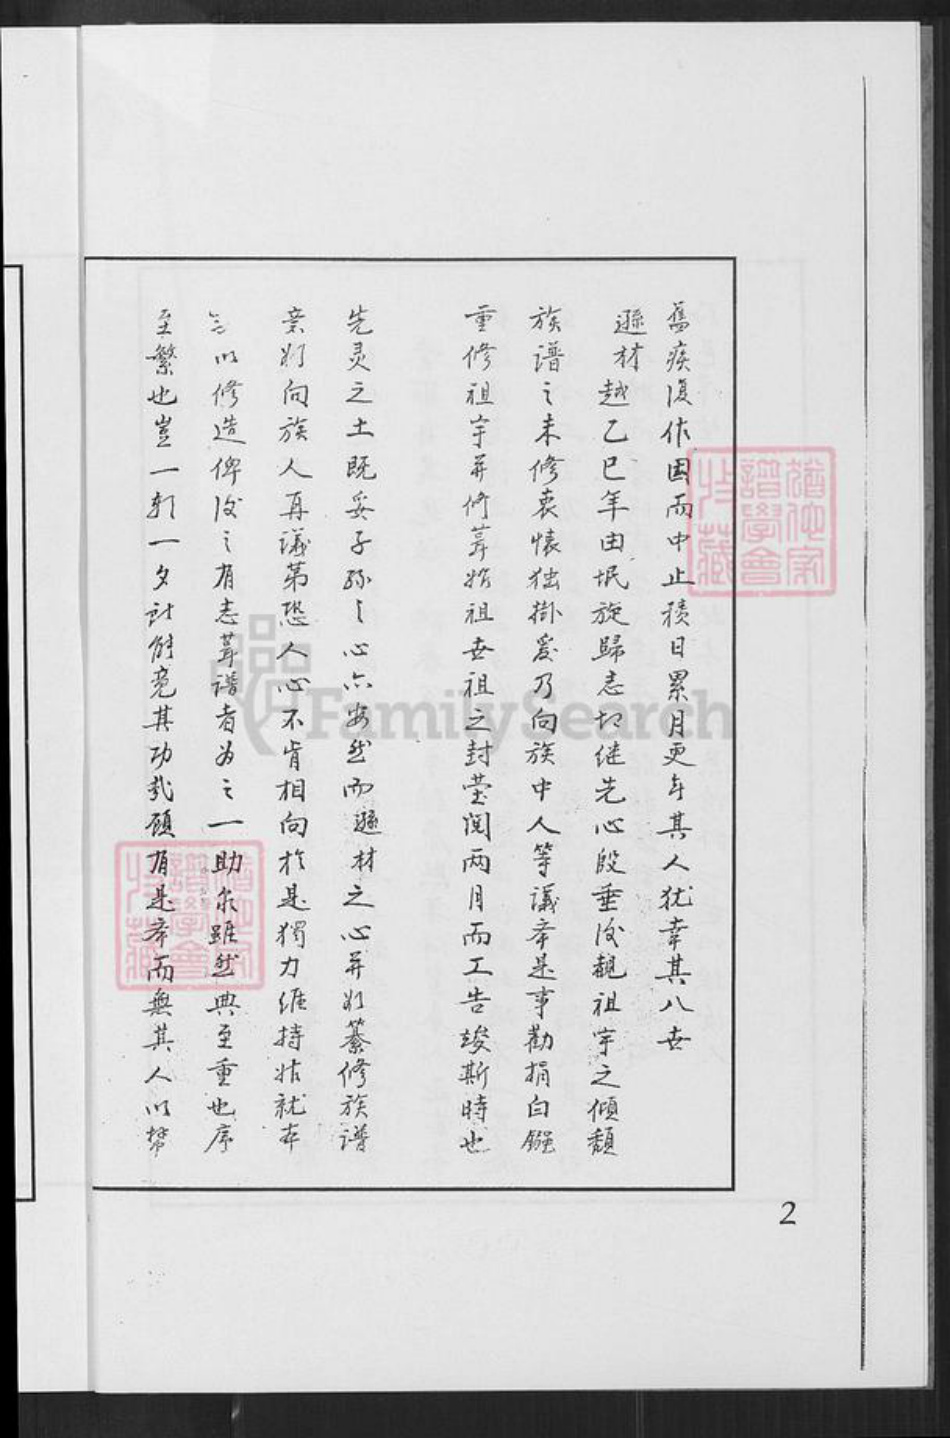 舊疾復作因而中止積日累月更年其人犹幸其八世
遜材越乙巳年由垊旋歸志切继先心殷垂後覩祖宇之傾頹
族譜之未修衷懐独掛爰乃向族中人等議举是事勸捐白鏹
重修祖宇并修葺始祖世祖之封塋閲两月而工告竣斯時也
先灵之土既妥子孫之心亦安然而遜材之心并行纂修族譜
亲行向族人再議第恐人心不肯相向於是獨力维持姑就本
以修造俾後之有志葺譜者为之一助尔雖然典至重也序
至繁也豈一朝一夕計能竟其功哉顧有是举而無其人以幣
2
譜學會
家
藏
FamilySearch